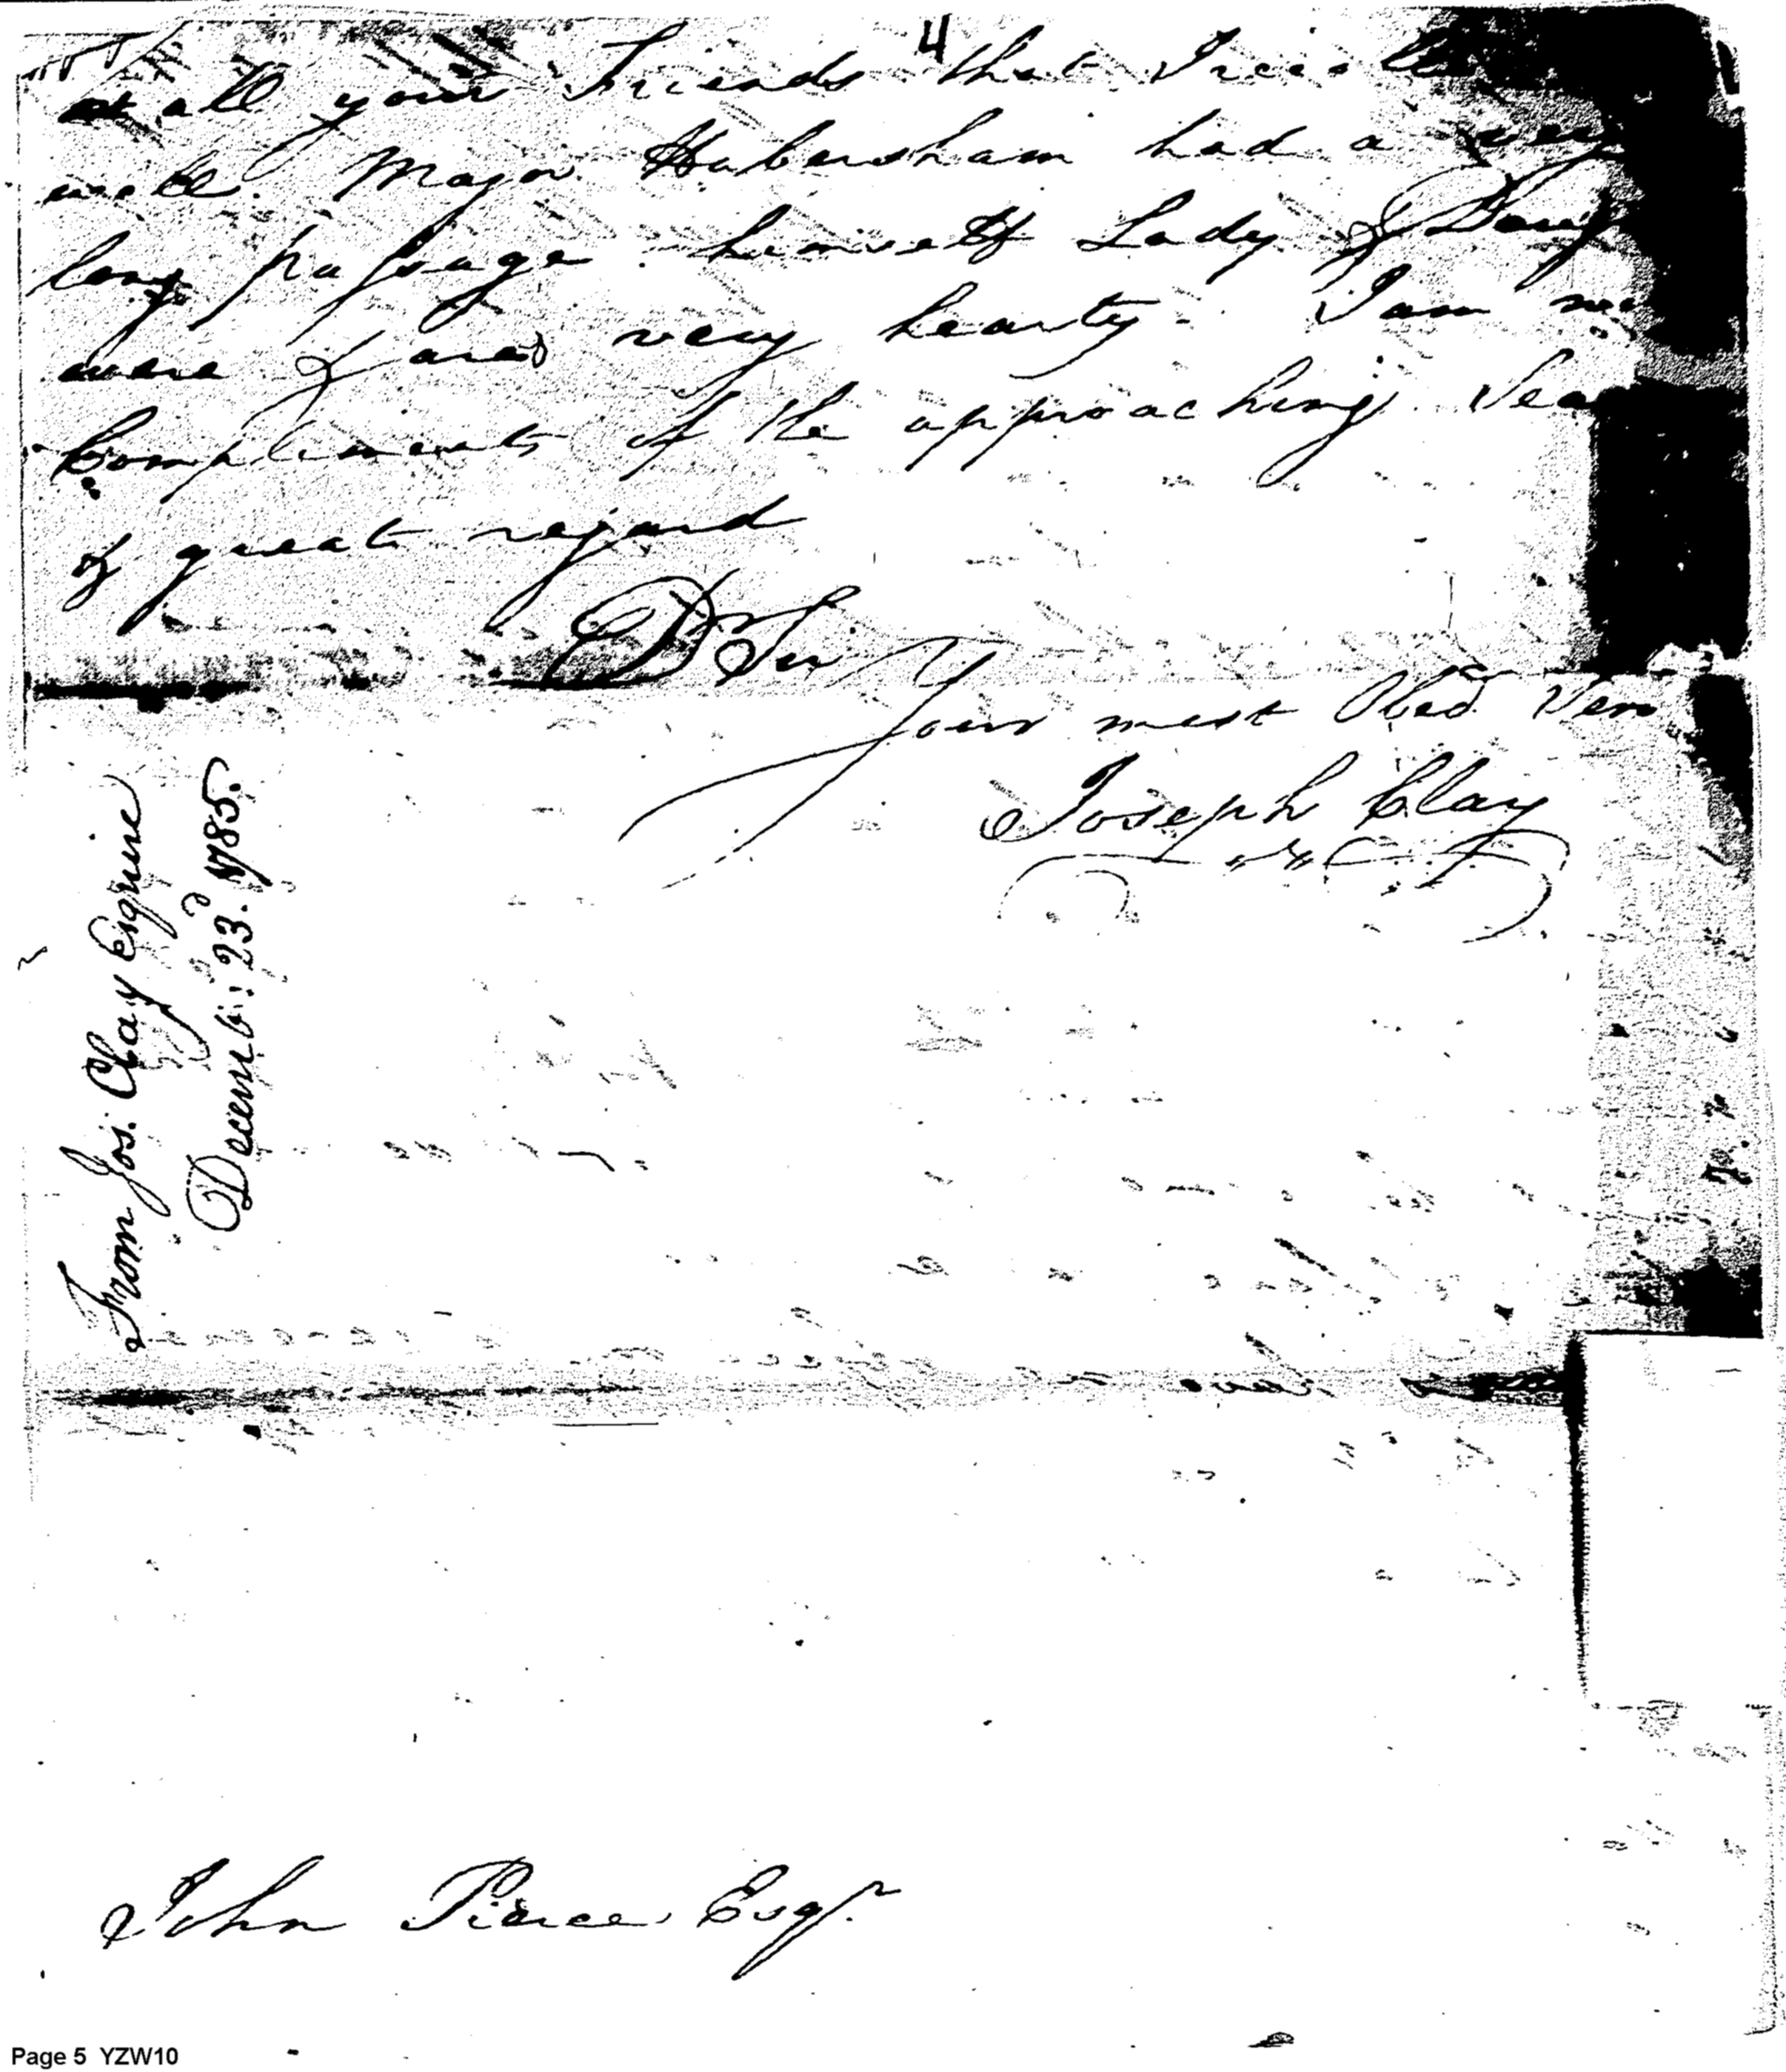 4
& all your Friends that I reco
well. Major Habersham had a very
long passage. himself Lady & Daug
were & are very hearty. I am
Compliments of the approaching Sea
of great regard
Dr Sir
Your most Obed Serv
Joseph Clay
From Jos. Clay Esquire
Decemb: 23d. 1785.
John Pierce Esqr.
Page 5 YZW10